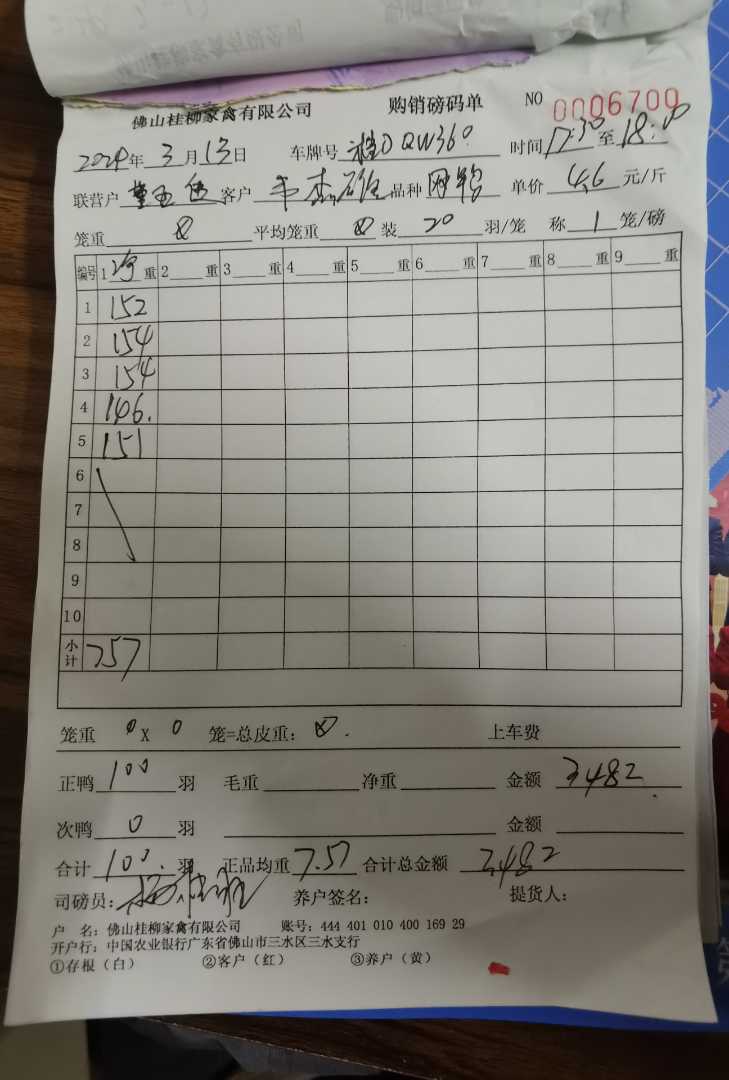 佛山桂柳家禽有限公司 购销磅码单 NO 0006700
2024年 3月13日 车牌号 桂D QW360 时间 17:30 至 18:00
联营户 客户 杰雄 品种 单价 4.6 元/斤
笼重 0 平均笼重 0 装 20 羽/笼 称 1 笼/磅
编号 1 净 重 2 重 3 重 4 重 5 重 6 重 7 重 8 重 9 重
1 152
2 154
3 154
4 146.
5 151
6
7
8
9
10
小计 757
笼重 0 X 0 笼=总皮重: 0. 上车费
正鸭 100 羽 毛重 净重 金额 3482.
次鸭 0 羽 金额
合计 100. 羽 正品均重 7.57 合计总金额 3482
司磅员: 养户签名: 提货人:
户 名: 佛山桂柳家禽有限公司 账号: 444 401 010 400 169 29
开户行: 中国农业银行广东省佛山市三水区三水支行
①存根（白） ②客户（红） ③养户（黄）